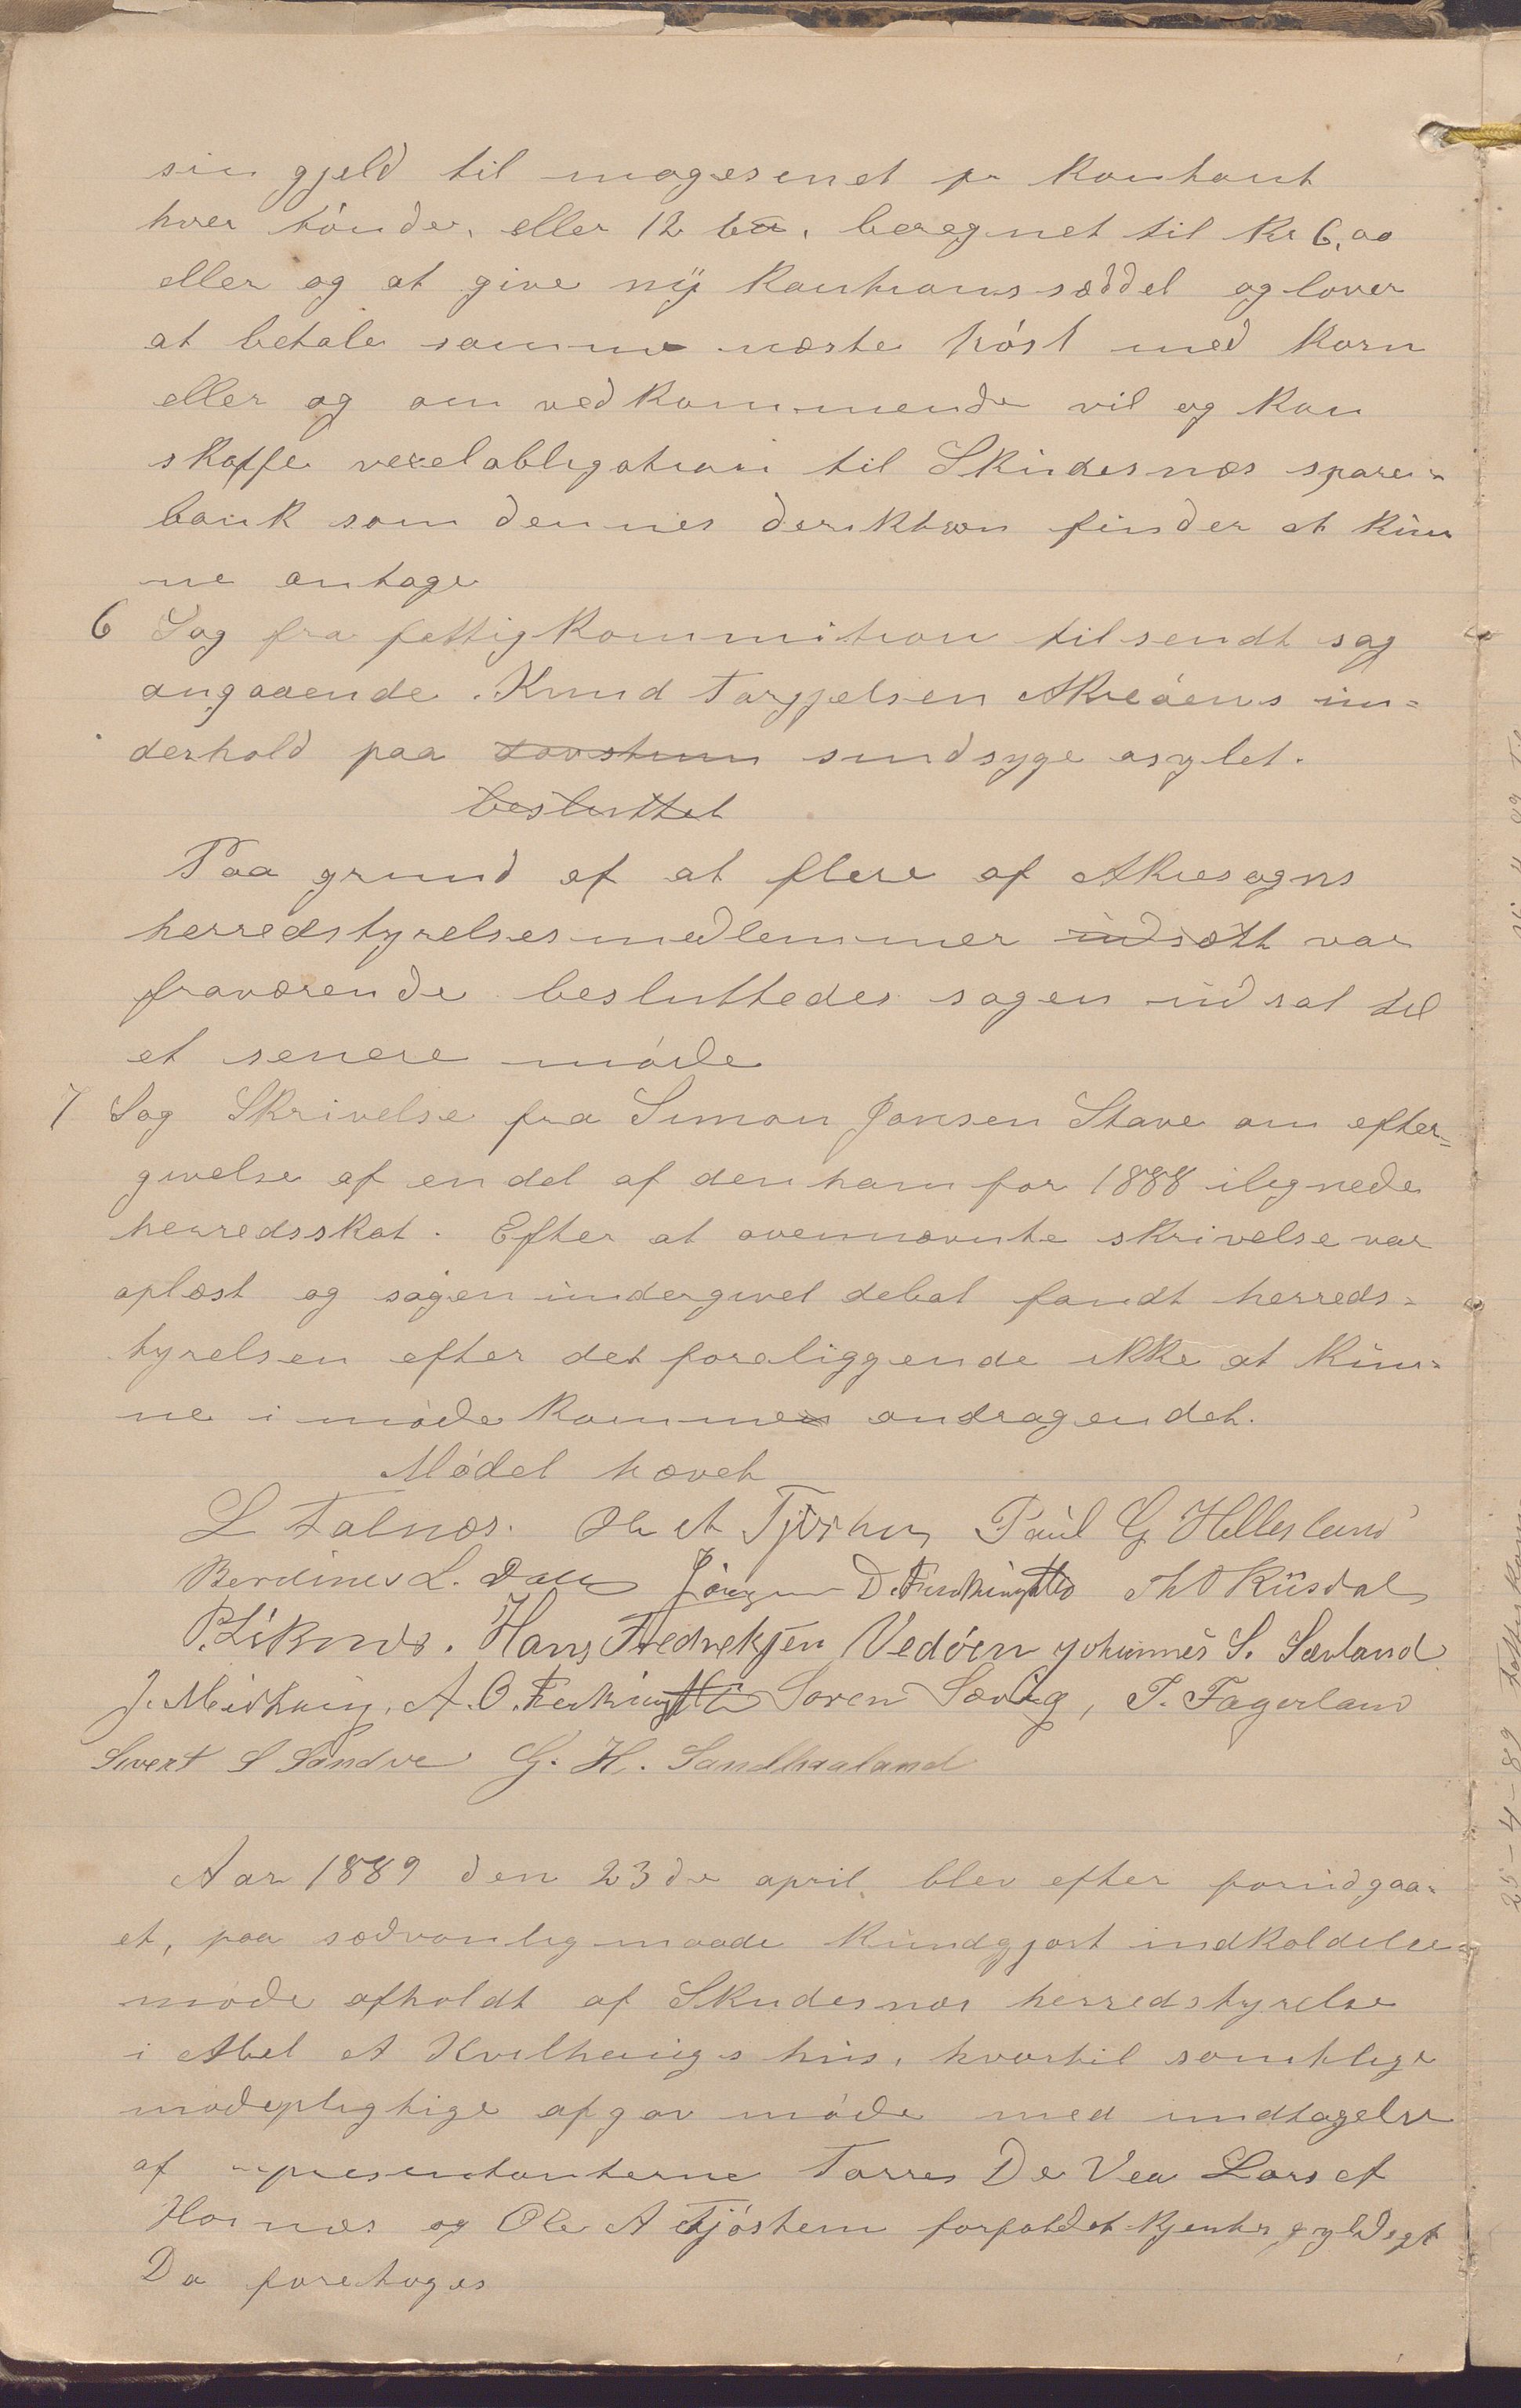 sin gjeld til magesenet pr kontant
hver tónde, eller 12 bu, beregnet til kr 6,00
eller og at give ny kautions sæddel og lover
at betale samme næste hóst med korn
eller og om vedkommende vil og kan
skaffe vexelobligation til Skudesnæs spare-
bank som dennes derektion finder at kun
ne antage
6 Sag fra fattigkommition tilsendt sag
angaaende Knud Torgjelsen Akreóens un-
derhold paa sindsyge asylet.
besluttet
Paa grund af at flere af Akresogns
herredstyrelsesmedlemmer udsatt var
fraværende besluttedes sagen udsat til
et senere móde
7 Sag Skrivelse fra Simon Jonsen Stave om efter=
givelse af en del af den ham for 1888 ilignede
herredsskat. Efter at ovennævnte skrivelse var
oplæst og sagen undergivet debat fandt herreds-
tyrelsen efter det foreliggende ikke at kun-
ne i móde komme andragendet.
Módet hævet
L Falnæs. Ole A Tjósthem Paul G Hellesland
Berdines L. Dale Jórgen D. Ferkingstad Th O Kiisdal
P. Liknes. Hans Fredreksen Vedóen Johannes S. Sævland
J. Medhaug, A. O. Ferkingstad Soren Sævig, T. Fagerland
Sivert S Sandve G. H. Sandhaaland
Aar 1889 den 23de april blev efter forudgaa-
et, paa sædvanlig maade kundgjort indkaldelse
móde afholdt af Skudesnæs herredstyrelse
i Abel A Kvilhaugs hus, hvortil samtlige
módepligtige afgav móde med undtagelse
af representanterne Torres De Vea Lars A
Hornæs og Ole A Tjóstem forfaldet kjentes gyldigt
Da foretoges